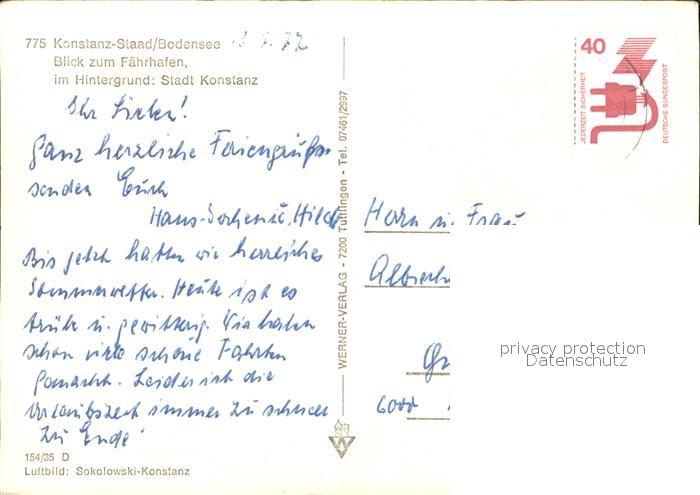 775 Konstanz-Staad/Bodensee
Blick zum Fährhafen,
im Hintergrund: Stadt Konstanz
Ihr Lieben!
Ganz herzliche Feriengrüße
senden Euch
Hans-Jochen u. Hilde
Bis jetzt hatten wir herrliches
Sommerwetter. Heute ist es
trüb u. gewittrig. Wir haben
schon viele schöne Fahrten
gemacht. Leider ist die
Urlaubszeit immer zu schnell
zu Ende!
154/35 D
Luftbild: Sokolowski-Konstanz
WERNER-VERLAG - 7200 Tuttlingen - Tel. 07461/2997
W
40
JEDERZEIT SICHERHEIT
DEUTSCHE BUNDESPOST
Herrn u. Frau
6000
privacy protection
Datenschutz